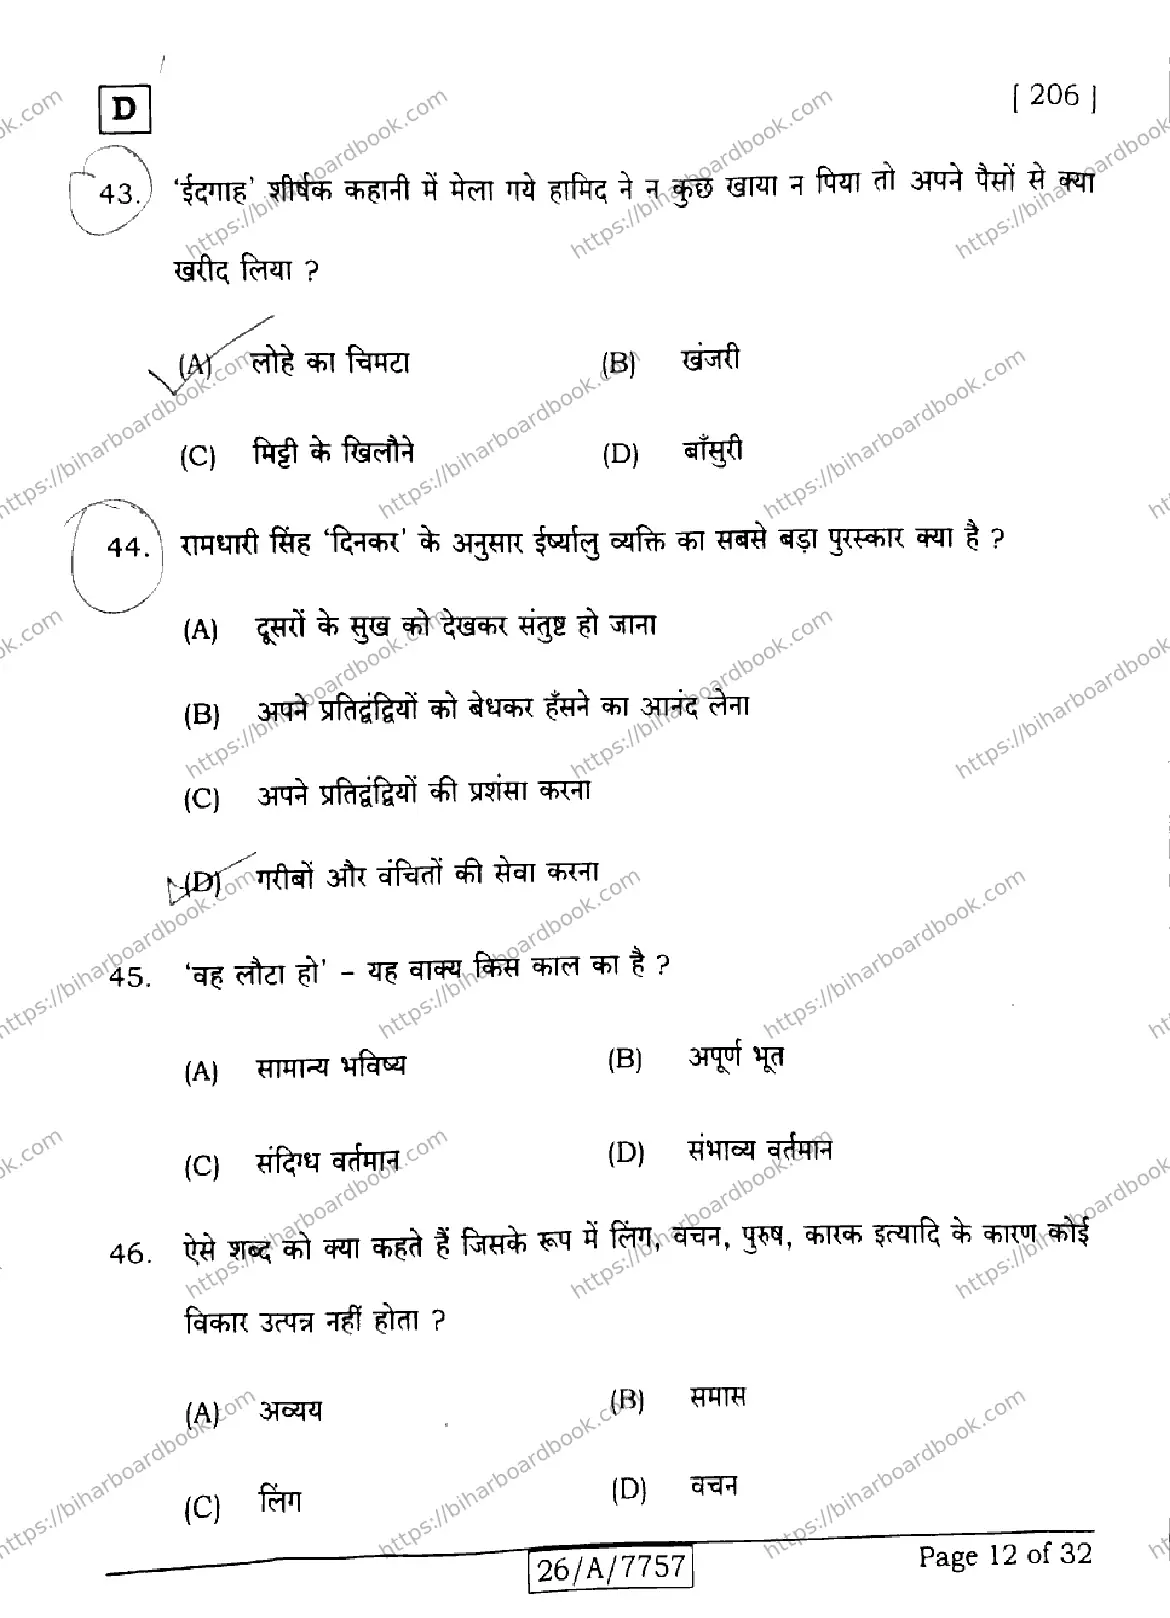 D
[ 206 ]
43. ‘ईदगाह’ शीर्षक कहानी में मेला गये हामिद ने न कुछ खाया न पिया तो अपने पैसों से क्या
खरीद लिया ?
(A) लोहे का चिमटा (B) खंजरी
(C) मिट्टी के खिलौने (D) बाँसुरी
44. रामधारी सिंह ‘दिनकर’ के अनुसार ईर्ष्यालु व्यक्ति का सबसे बड़ा पुरस्कार क्या है ?
(A) दूसरों के सुख को देखकर संतुष्ट हो जाना
(B) अपने प्रतिद्वंद्वियों को बेधकर हँसने का आनंद लेना
(C) अपने प्रतिद्वंद्वियों की प्रशंसा करना
(D) गरीबों और वंचितों की सेवा करना
45. ‘वह लौटा हो’ – यह वाक्य किस काल का है ?
(A) सामान्य भविष्य (B) अपूर्ण भूत
(C) संदिग्ध वर्तमान (D) संभाव्य वर्तमान
46. ऐसे शब्द को क्या कहते हैं जिसके रूप में लिंग, वचन, पुरुष, कारक इत्यादि के कारण कोई
विकार उत्पन्न नहीं होता ?
(A) अव्यय (B) समास
(C) लिंग (D) वचन
26/A/7757
Page 12 of 32
https://biharboardbook.com